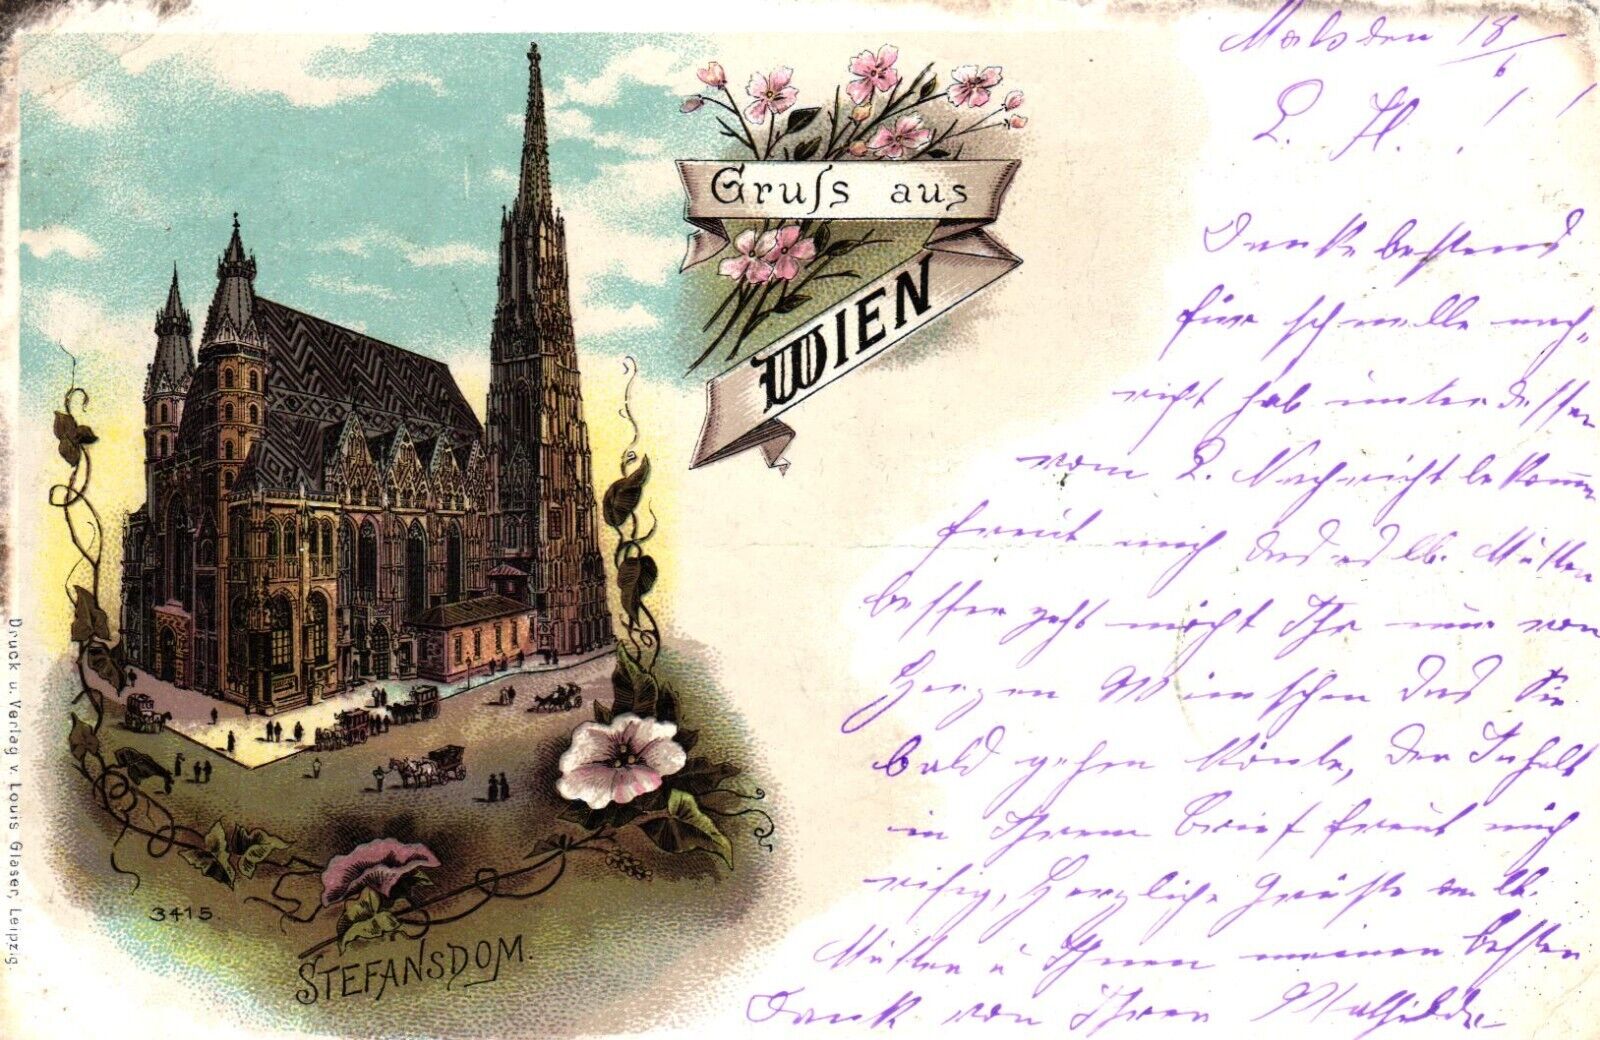 Gruſs aus
WIEN
STEFANSDOM.
3415
Druck u. Verlag v. Louis Glaser, Leipzig.
den 18/6
L. Fl.!!
Danke bestens
für schnelle nach„
richt hab unterdessen
vom L. Nachricht bekommen
freut mich das es lb. Mutter
besser geht möcht Ihr nur von
Herzen Wünschen das Sie
bald gehen könte, der Inhalt
in Ihrem Brief freut mich
risig, Herzliche Grüße an lb.
Mutter u Ihnen meinen besten
Dank von Ihrer Mathilde